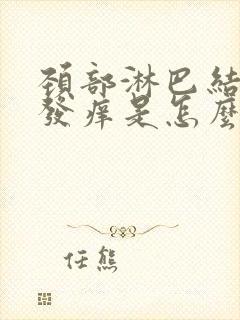 頚部淋巴結
發痒是怎麼
任熊